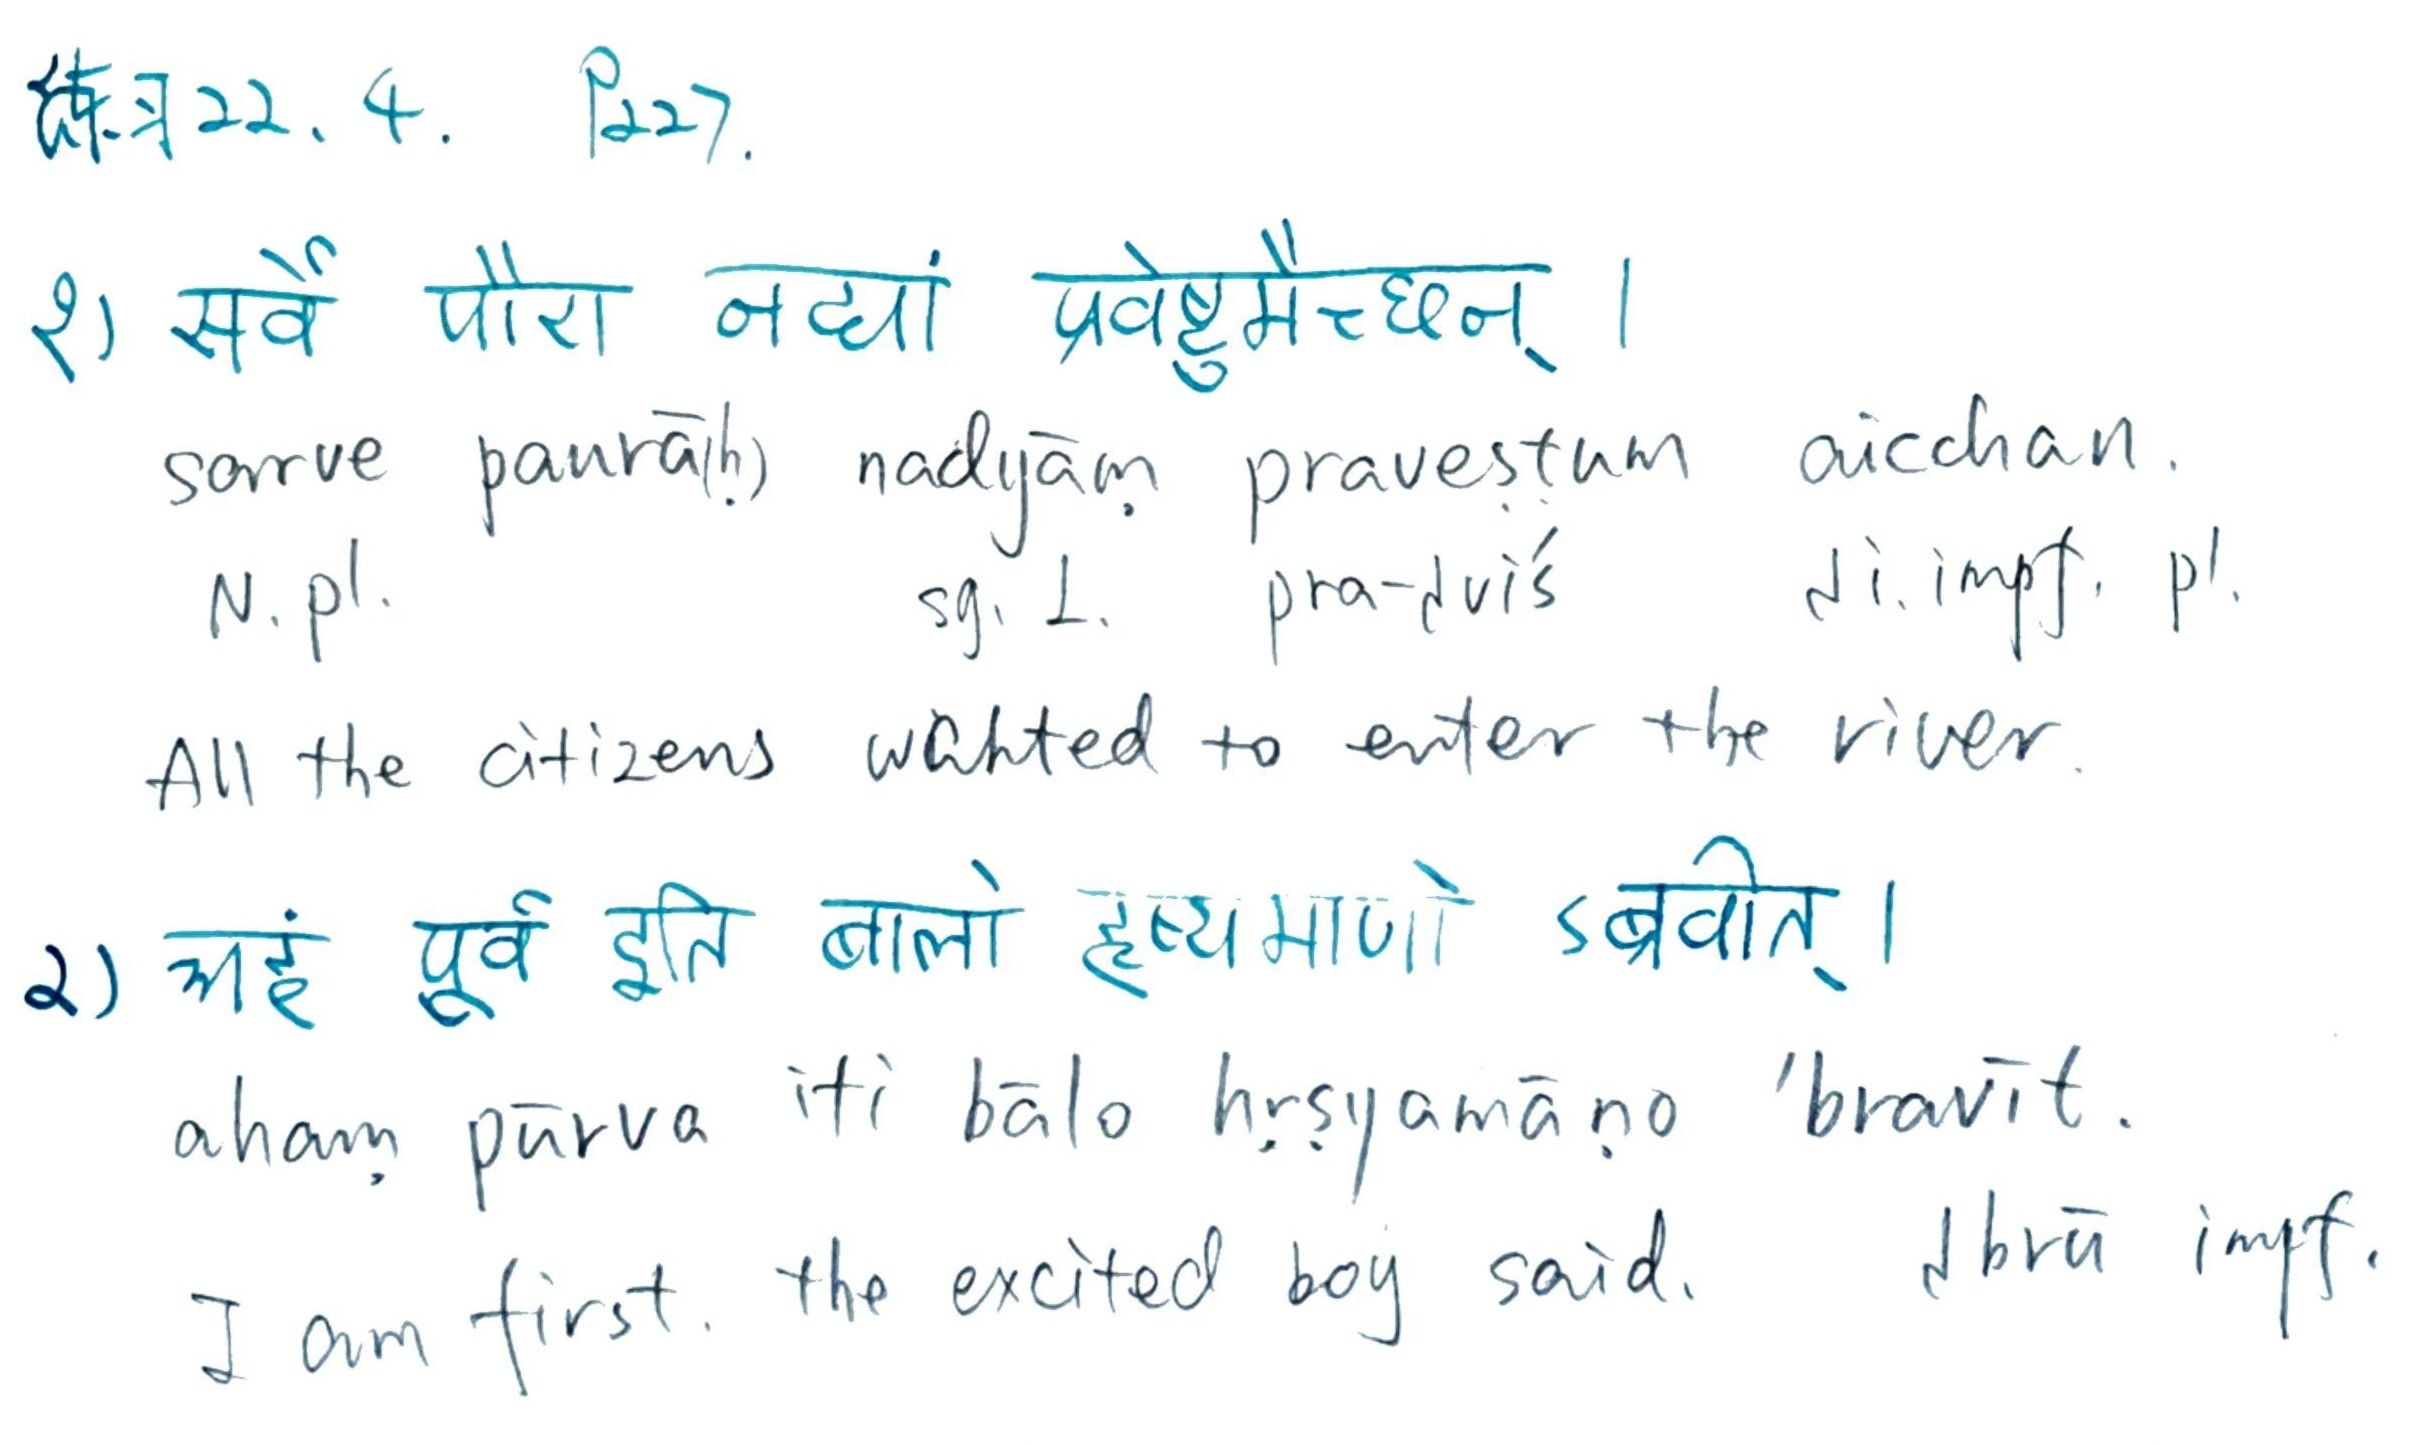 练习22.4. P227.
१) सर्वे पौरा नद्यां प्रवेष्टुमैच्छन्।
sarve paurā(ḥ) nadyāṃ praveṣṭum aicchan.
N.pl. sg. L. pra-√viś √i. impf. pl.
All the citizens wanted to enter the river.
२) अहं पूर्व इति बालो हृष्यमाणो ऽब्रवीत्।
ahaṃ pūrva iti bālo hṛṣyamāṇo 'bravīt.
I am first. the excited boy said. √brū impf.